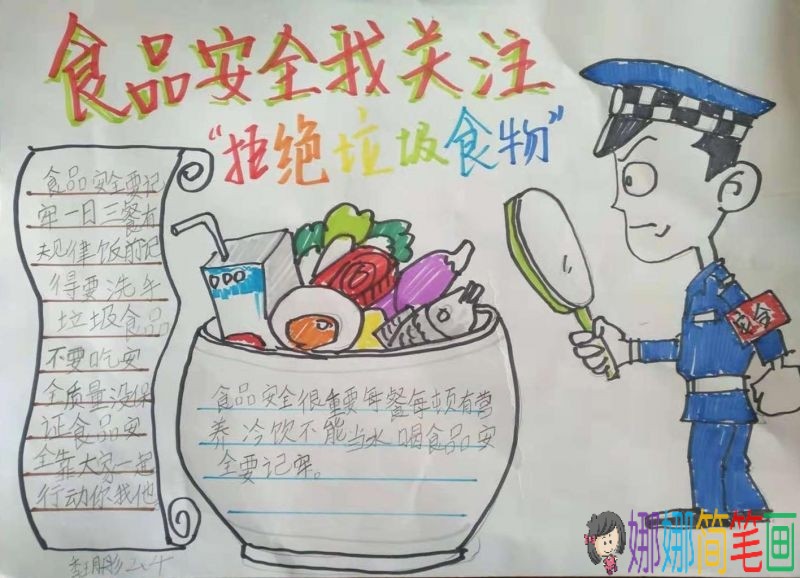 食品安全我关注
“拒绝垃圾食物”
食品安全要记
牢一日三餐有
规律饭前记
得要洗手
垃圾食品
不要吃安
全质量没保
证食品安
全靠大家一起
行动你我他
食品安全很重要每餐每顿有营
养冷饮不能当水喝食品安
全要记牢。
安全
娜娜简笔画